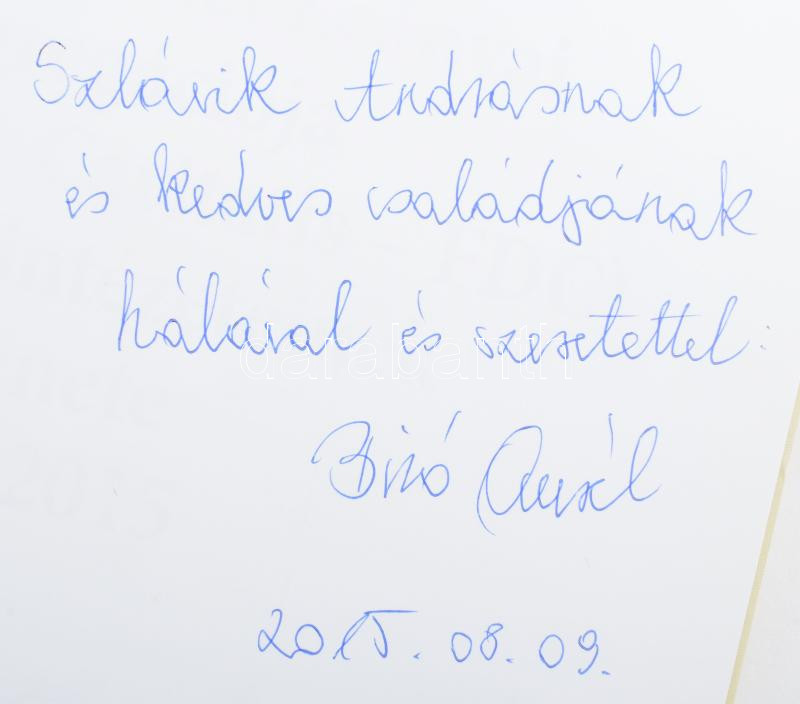 Szlávik Andrásnak
és kedves családjának
hálával és szeretettel:
darabanth
Bíró Aurél
2015. 08. 09.